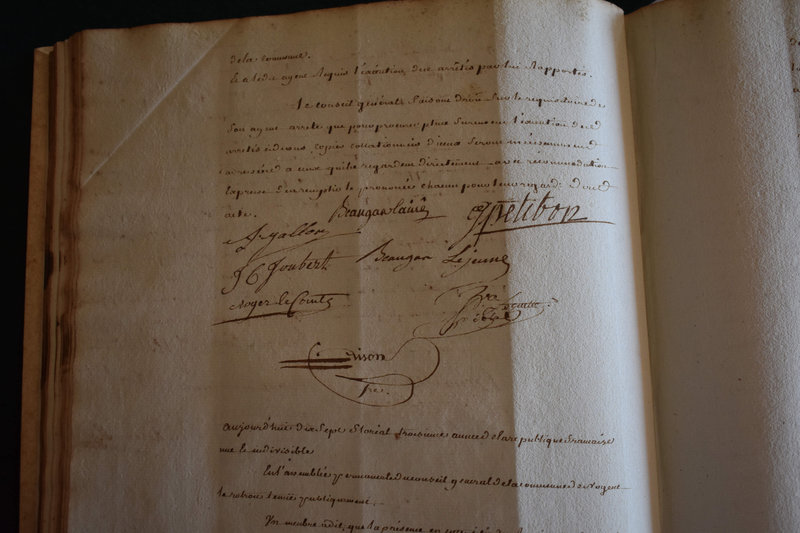 de la commune.
Le aledit agent Requis l'exécution des arrêtés par lui Rapportés.
Le conseil général faisant droit sur le requisitoire de
son agent arrête que pour procurer plus surement l'exécution desd
arrêtés cidessus, copies collationnées d'iceux seront incessamment
adressées a ceux qui les regardent directement avec recommandation
Expresse d'en remplir le prononcé chacun pour leurs regards dont
acte.
Beaugars lainé
GPetibon
A Gallon
J C Joubert
Beaugars Lejeune
Roger le Comte
fre.
aujourd'hui dix sept floréal troisieme année de la republique francaise
une et indivisible
En l'assemblée permanente du conseil general de la commune de Nogent
le rotrou tenüe publiquement.
Un membre a dit, que la présence en